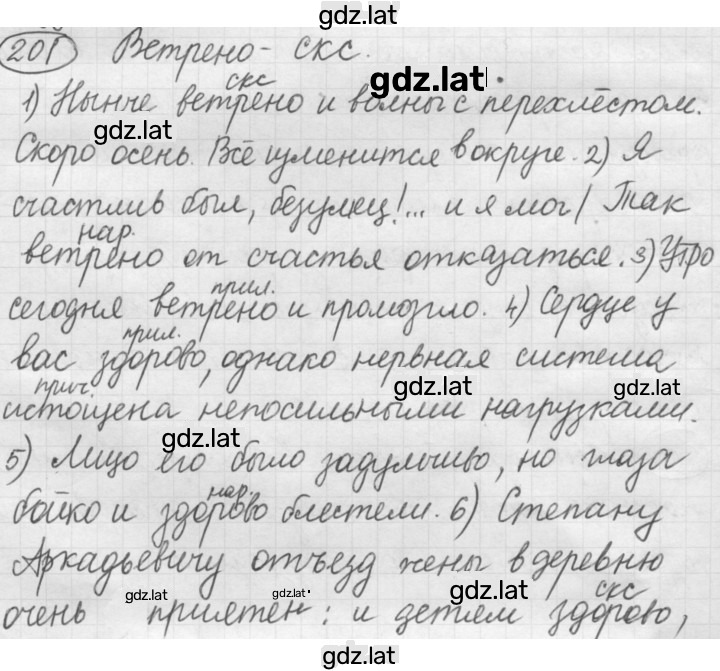 gdz.lat
201 Ветрено - СКС.
gdz.lat
скс
1) Нынче ветрено и волны с перехлёстом.
gdz.lat
Скоро осень. Всё изменится в округе. 2) Я
счастлив был, безумец!... и я мог / Так
нар.
ветрено от счастья отказаться. 3) Утро
прил.
сегодня ветрено и промозгло. 4) Сердце у
прил.
вас здорово, однако нервная система
прич. gdz.lat gdz.lat
истощена непосильными нагрузками.
gdz.lat
5) Лицо его было задумчиво, но глаза
нар.
бойко и здорово блестели. 6) Степану
Аркадьевичу отъезд жены в деревню
gdz.lat gdz.lat gdz.lat скс
очень приятен: и детям здорово,
gdz.lat